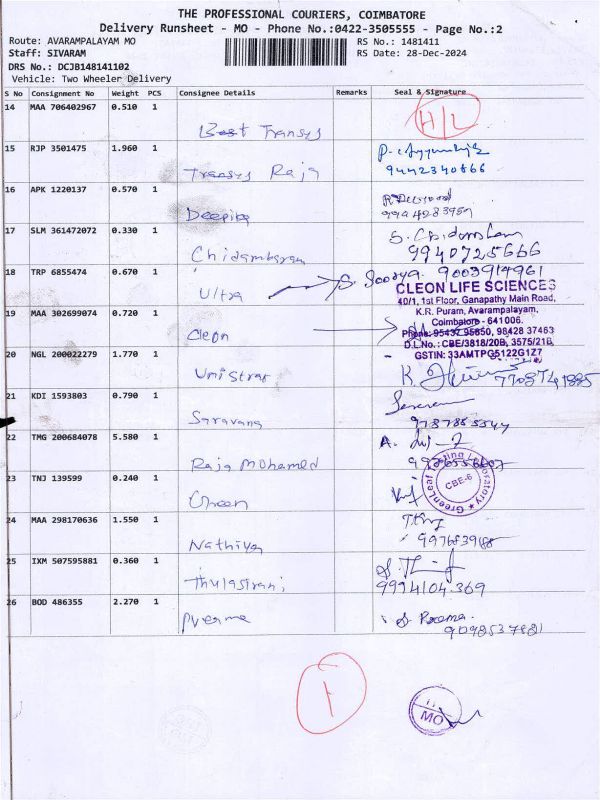 THE PROFESSIONAL COURIERS, COIMBATORE
Delivery Runsheet - MO - Phone No.:0422-3505555 - Page No.:2
Route: AVARAMPALAYAM MO
RS No.: 1481411
Staff: SIVARAM
RS Date: 28-Dec-2024
DRS No.: DCJB148141102
Vehicle: Two Wheeler Delivery
S No Consignment No Weight PCS Consignee Details Remarks Seal & Signature
14 MAA 706402967 0.510 1
Best Transys
H/L
15 RJP 3501475 1.960 1
Transys Raja
9442340666
16 APK 1220137 0.570 1
Deepika
17 SLM 361472072 0.330 1
Chidambaram
S. Chidambaram
9940725666
18 TRP 6855474 0.670 1
Ultra
S. Soorya. 9003914961
CLEON LIFE SCIENCES
40/1, 1st Floor, Ganapathy Main Road,
K.R. Puram, Avarampalayam,
Coimbatore - 641006.
Phone: 95432 95850, 98428 37463
D.L.No.: CBE/3818/20B, 3575/21B,
GSTIN: 33AMTPG5122G1Z7
19 MAA 302699074 0.720 1
Cleon
20 NGL 200022279 1.770 1
K.
21 KDI 1593803 0.790 1
Saravana
22 TMG 200684078 5.580 1
Raja Mohamed
A.
23 TNJ 139599 0.240 1
Green
GreenLeaf Testing Laboratory
CBE-6
24 MAA 298170636 1.550 1
Nathiya
25 IXM 507595881 0.360 1
Thulasirani
9994104369
26 BOD 486355 2.270 1
Prema
S. Prema
1
MO